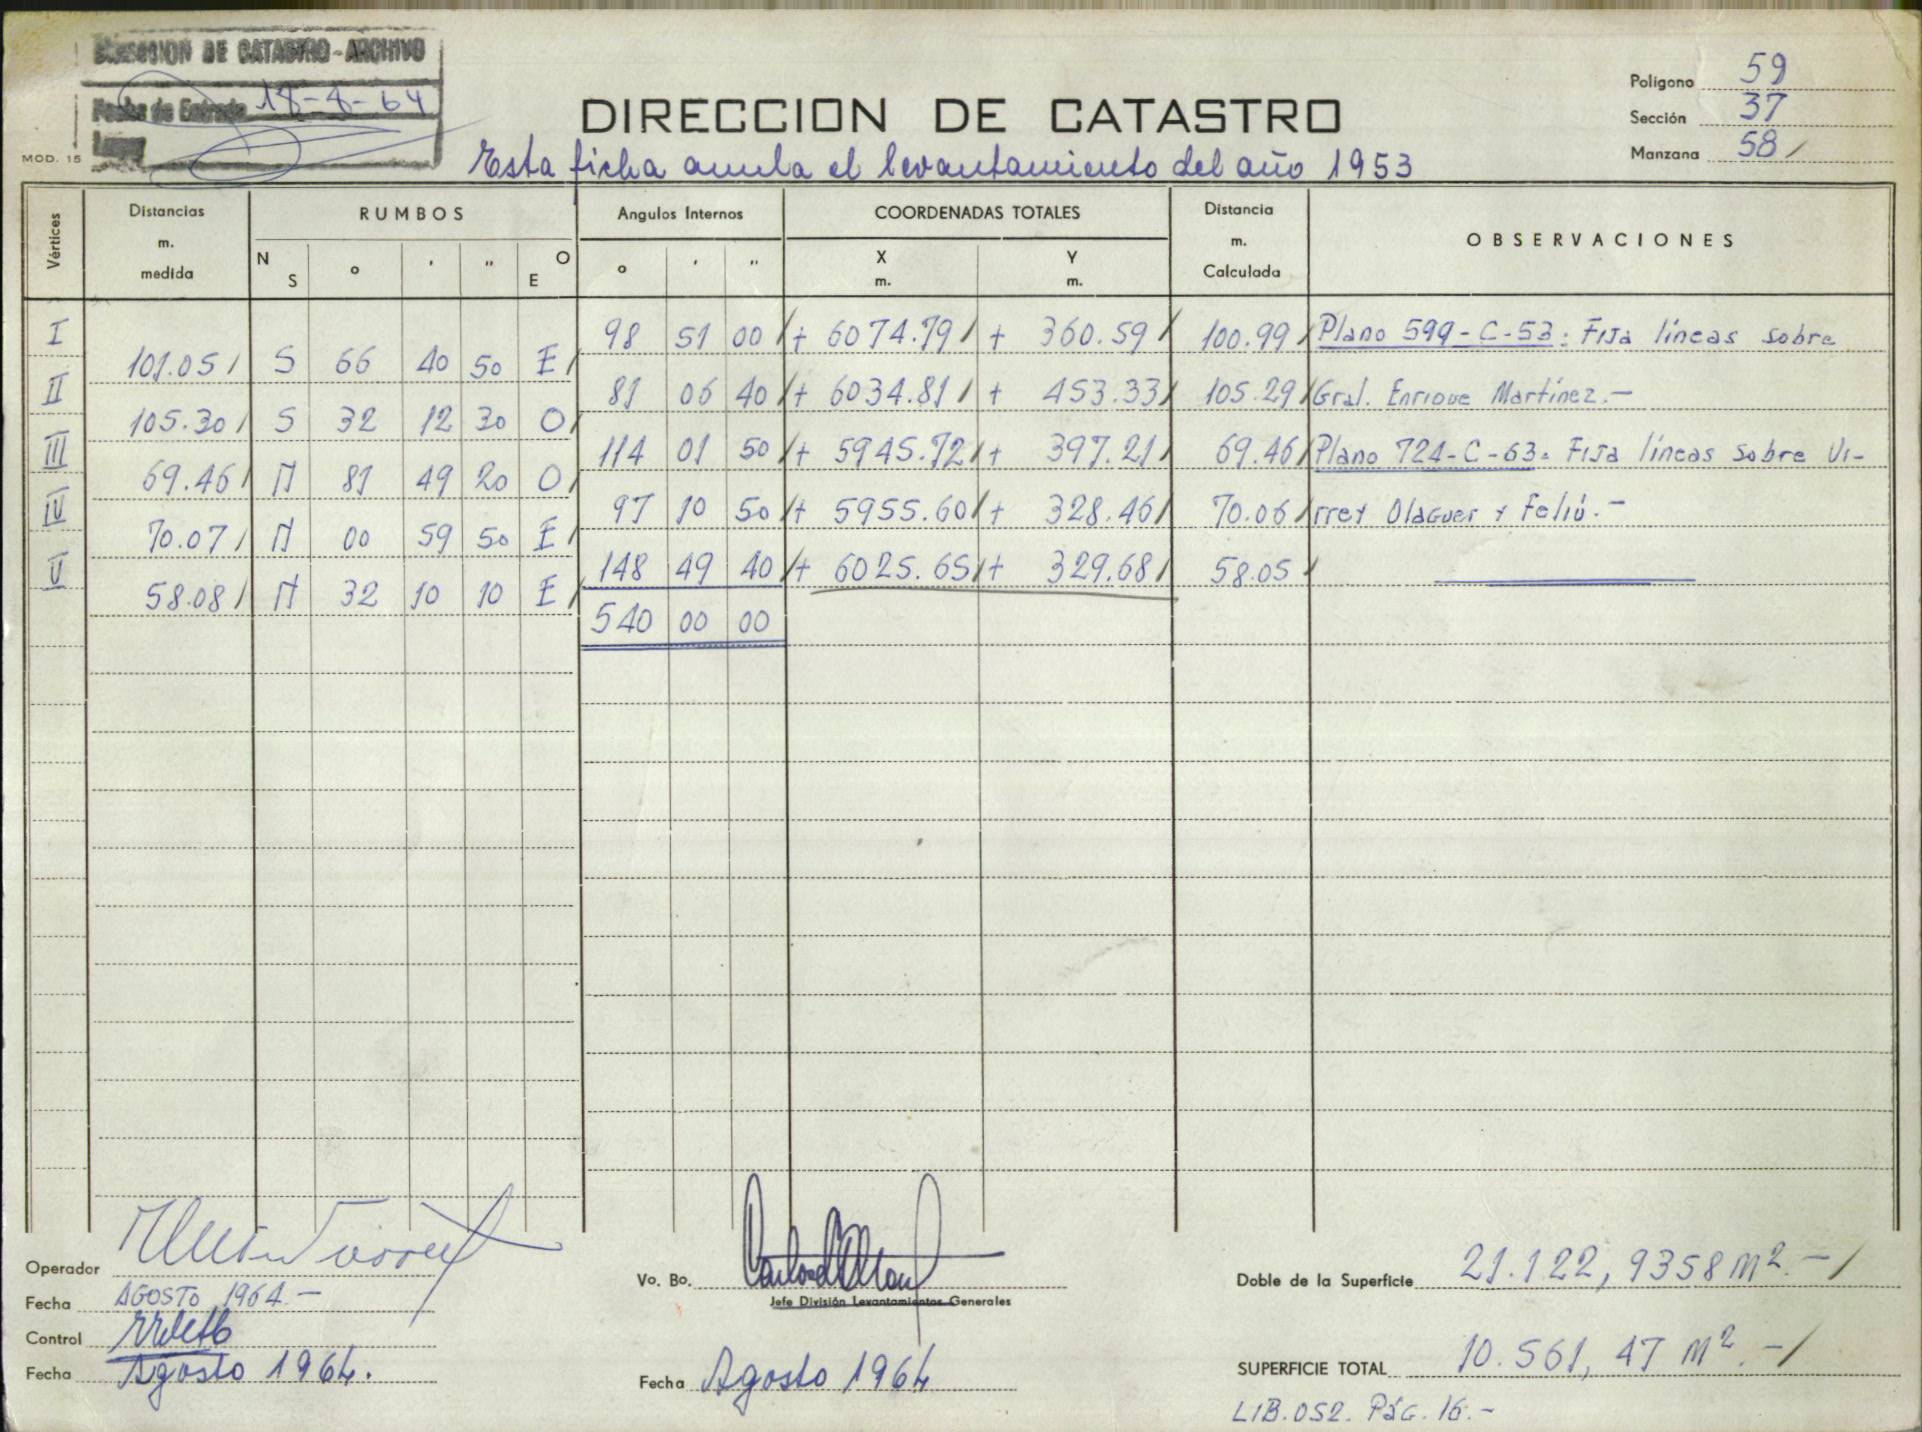 DIRECCION DE CATASTRO - ARCHIVO
Fecha de Entrada 18-8-64
MOD. 15
DIRECCION DE CATASTRO
Esta ficha anula el levantamiento del año 1953
Polígono 59
Sección 37
Manzana 58
Vértices Distancias m. medida RUMBOS N S ° ' " O E Angulos Internos ° ' " COORDENADAS TOTALES X m. Y m. Distancia m. Calculada OBSERVACIONES
I 98 51 00 + 6074.79 + 360.59 100.99 Plano 599-C-53: Fija líneas sobre
101.05 S 66 40 50 E
II 81 06 40 + 6034.81 + 453.33 105.29 Gral. Enrique Martínez.-
105.30 S 32 12 30 O
III 114 01 50 + 5945.72 + 397.21 69.46 Plano 724-C-63: Fija líneas sobre Vi-
69.46 N 81 49 20 O
IV 97 10 50 + 5955.60 + 328.46 70.06 rrey Olaguer y Feliú.-
70.07 N 00 59 50 E
V 148 49 40 + 6025.65 + 329.68 58.05
58.08 N 32 10 10 E
540 00 00
Operador
Fecha AGOSTO 1964.-
Control
Fecha Agosto 1964.
Vo. Bo.
Jefe División Levantamientos Generales
Fecha Agosto 1964
Doble de la Superficie 21.122,9358 M².-
SUPERFICIE TOTAL 10.561,47 M².-
LIB. 052. PÁG. 16.-